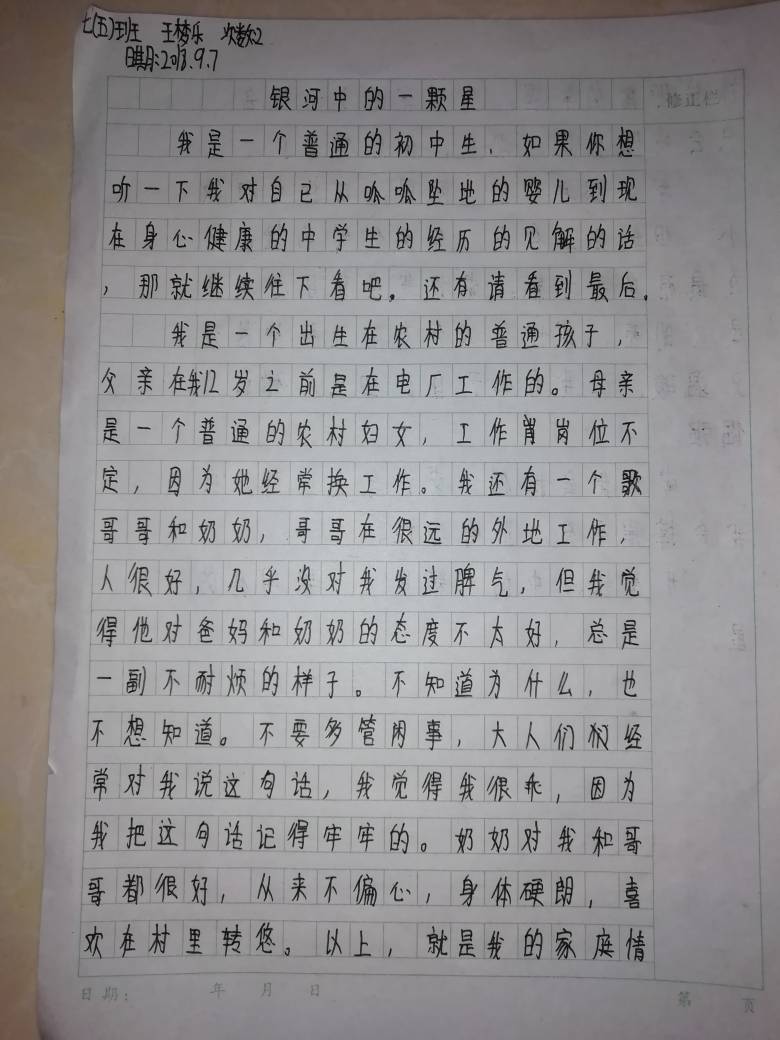 七(五)班 王梦乐 次数:2
日期:2018.9.7
银河中的一颗星
修正栏
我是一个普通的初中生,如果你想
听一下我对自己从呱呱坠地的婴儿到现
在身心健康的中学生的经历的见解的话
,那就继续往下看吧。还有请看到最后.
我是一个出生在农村的普通孩子,
父亲在我12岁之前是在电厂工作的。母亲
是一个普通的农村妇女,工作岗位不
定,因为她经常换工作。我还有一个
哥哥和奶奶,哥哥在很远的外地工作,
人很好,几乎没对我发过脾气,但我觉
得他对爸妈和奶奶的态度不太好,总是
一副不耐烦的样子。不知道为什么,也
不想知道。不要多管闲事,大人们经
常对我说这句话,我觉得我很乖,因为
我把这句话记得牢牢的。奶奶对我和哥
哥都很好,从来不偏心,身体硬朗,喜
欢在村里转悠。以上,就是我的家庭情
日期: 年 月 日 第 页